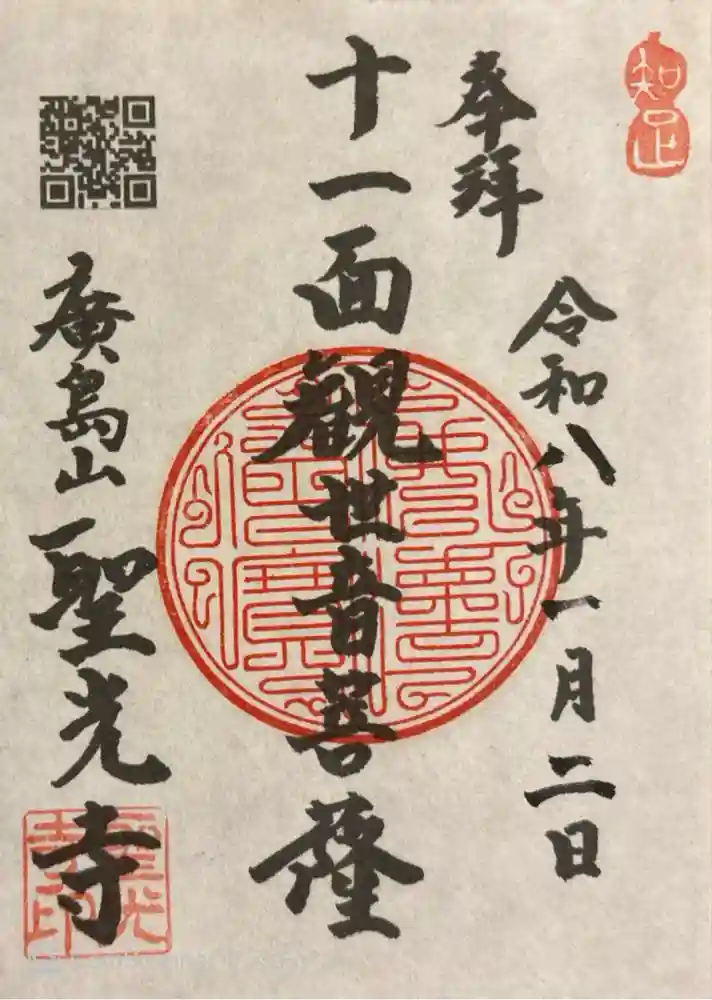 知足
奉拝
令和八年一月二日
十一面観世音菩薩
廣島山
聖光寺
聖光寺印